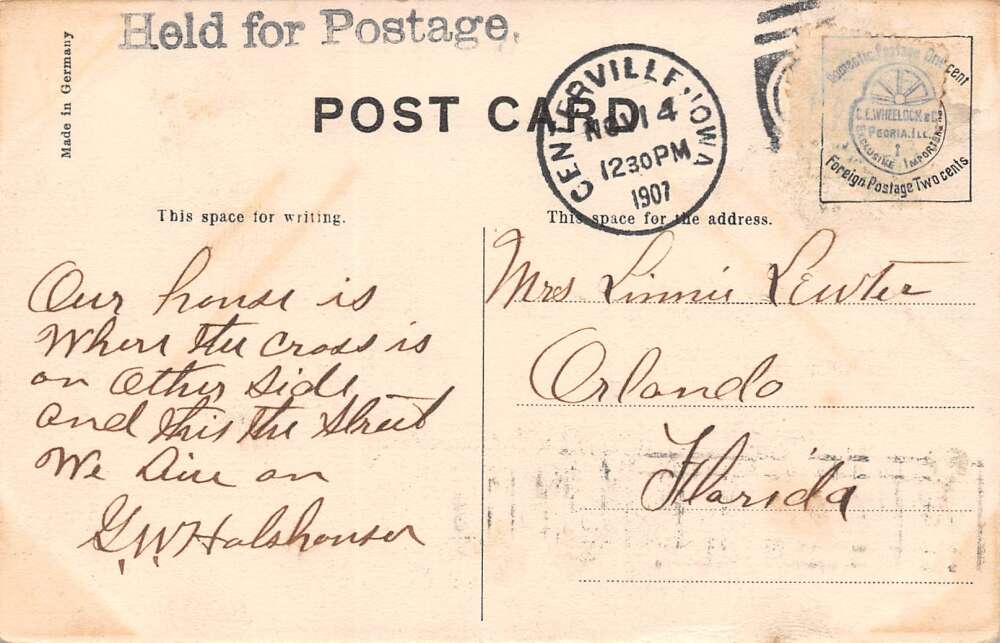 Held for Postage.
Made in Germany
POST CARD
CENTERVILLE, IOWA
NOV 14
1230 PM
1907
Domestic Postage One cent
C.E. WHEELOCK & CO.
PEORIA, ILL.
EXCLUSIVE IMPORTERS
Foreign Postage Two cents
This space for writing.
This space for the address.
Our house is
Where the cross is
on other side
and this the street
We live on
G.W. Holshouser
Mrs Linnie Lewter
Orlando
Florida